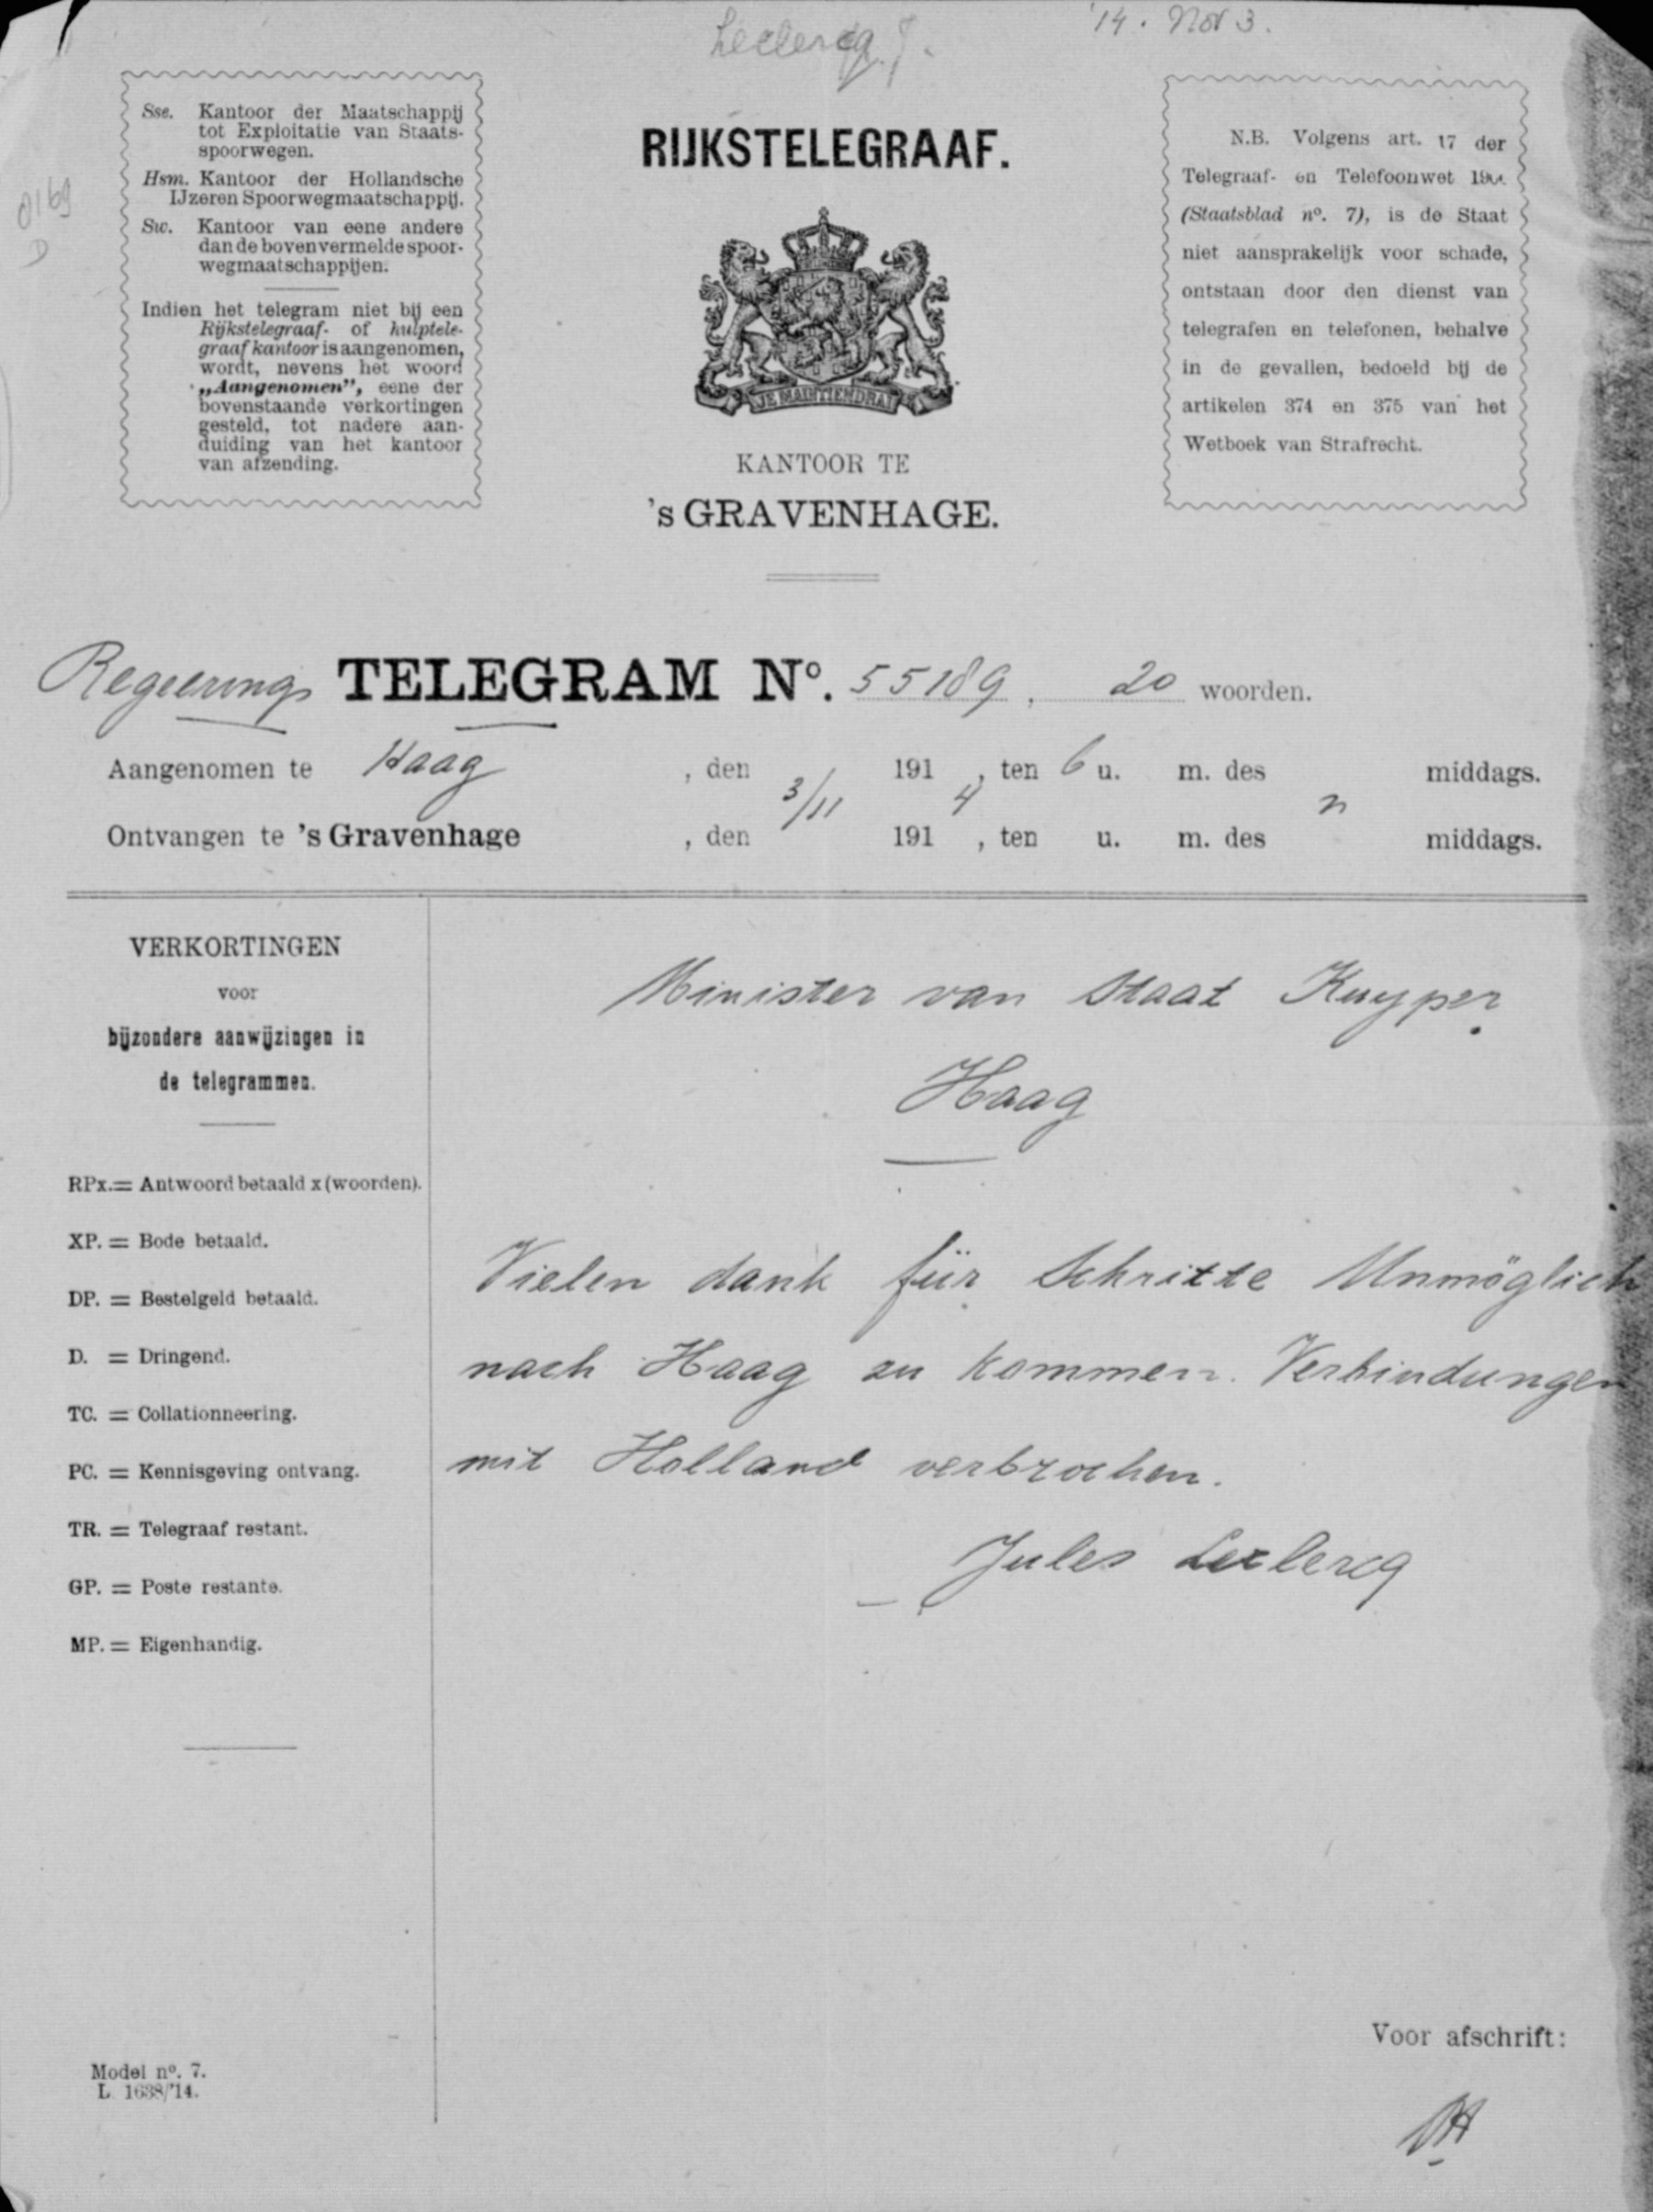 Leclercq J.
'14. Nov 3.
0169
D
Sse. Kantoor der Maatschappij
tot Exploitatie van Staats-
spoorwegen.
Hsm. Kantoor der Hollandsche
IJzeren Spoorwegmaatschappij.
Sw. Kantoor van eene andere
dan de bovenvermelde spoor-
wegmaatschappijen.
Indien het telegram niet bij een
Rijkstelegraaf- of hulptele-
graafkantoor is aangenomen,
wordt, nevens het woord
„Aangenomen”, eene der
bovenstaande verkortingen
gesteld, tot nadere aan-
duiding van het kantoor
van afzending.
RIJKSTELEGRAAF.
JE MAINTIENDRAI
KANTOOR TE
's GRAVENHAGE.
N.B. Volgens art. 17 der
Telegraaf- en Telefoonwet
(Staatsblad nº. 7), is de Staat
niet aansprakelijk voor schade,
ontstaan door den dienst van
telegrafen en telefonen, behalve
in de gevallen, bedoeld bij de
artikelen 374 en 375 van het
Wetboek van Strafrecht.
Regeerings TELEGRAM Nº. 55189, 20 woorden.
Aangenomen te Haag, den 191 , ten 6 u. m. des middags.
3/11 4 n
Ontvangen te 's Gravenhage, den 191 , ten u. m. des middags.
VERKORTINGEN
voor
bijzondere aanwijzingen in
de telegrammen.
RPx.= Antwoord betaald x (woorden).
XP. = Bode betaald.
DP. = Bestelgeld betaald.
D. = Dringend.
TC. = Collationneering.
PC. = Kennisgeving ontvang.
TR. = Telegraaf restant.
GP. = Poste restante.
MP. = Eigenhandig.
Minister van Staat Kuyper
Haag
Vielen dank für Schritte Unmöglich
nach Haag zu kommen. Verbindungen
mit Holland verbrochen.
Jules Leclercq
Model nº. 7.
L. 1638/'14.
Voor afschrift: